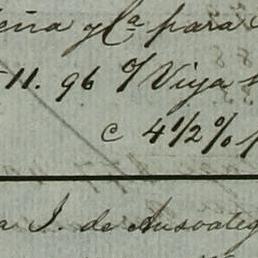 eña y Cª para
11. 96 o/ Viya
c 4 1/2 %
J. de Ansoateg